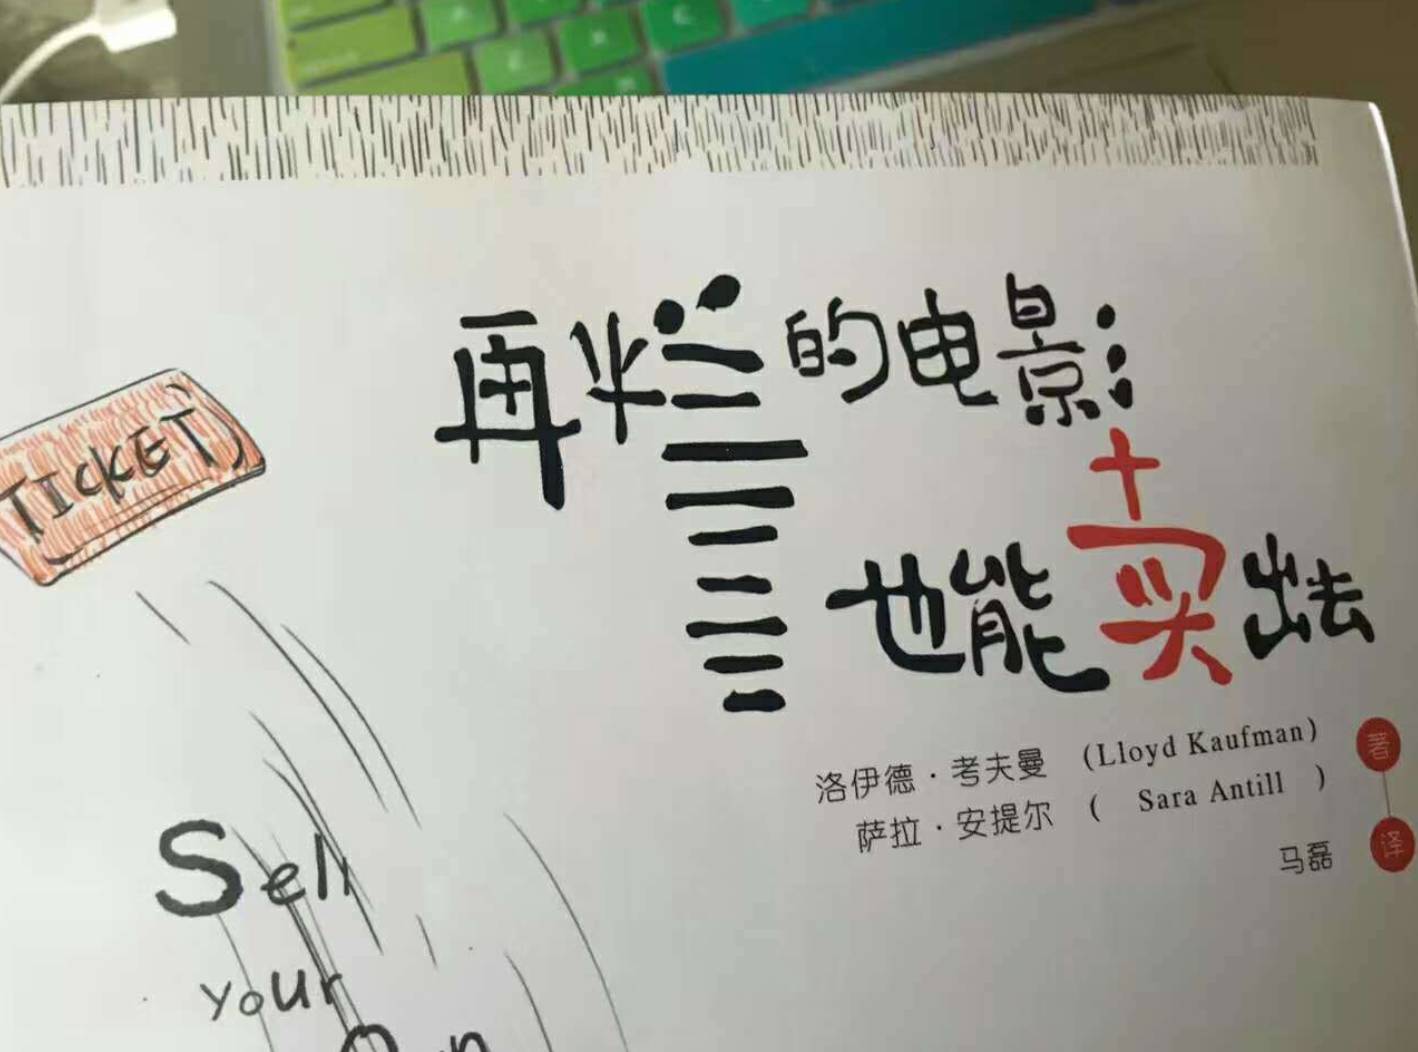 TICKET
再烂的电影
也能卖出去
洛伊德·考夫曼 (Lloyd Kaufman) 著
萨拉·安提尔 ( Sara Antill )
马磊 译
Sell
your